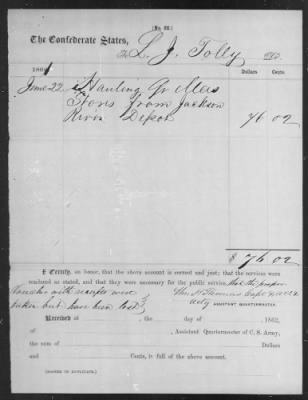 [No. 22.]
The Confederate States,
To L. J. Tolly Dr.
1861 Dollars Cents
June 22 Hauling Qr Mas
Stores from Jackson
River Depot 76 02
$ 76 02
I Certify, on honor, that the above account is correct and just; that the services were
rendered as stated, and that they were necessary for the public service, that the proper
Voucher with receipts were
taken but have been lost
Capt
Actg ASSISTANT QUARTERMASTER.
Received at , the day of , 1862,
of , Assistant Quartermaster of C. S. Army,
the sum of Dollars
and Cents, in full of the above account.
[SIGNED IN DUPLICATE.]